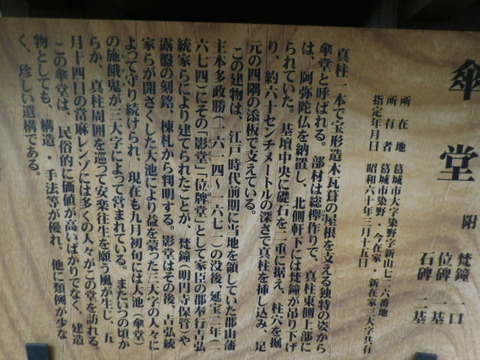 傘堂 附 梵鐘 一口
位牌 一基
石碑 二基
所在地 葛城市大字染野字新山七二六番地
所有者 葛城市染野・今在家・新在家三大字共有
指定年月日 昭和六十年三月十五日
真柱一本で宝形造本瓦葺の屋根を支える独特の姿から
傘堂と呼ばれる。部材は総欅作りで、真柱東側上部に
は、阿弥陀仏を納置し、北側軒下には梵鐘が吊り下げ
られていた。基壇中央に礎石を二重に据え、柱穴を掘
り、約六十センチメートルの深さで真柱を挿し込み、足
元の四隅の添板で支えている。
この建物は、江戸時代前期に当地を領していた郡山藩
主本多政勝(一六一四〜一六七一)の没後、延宝二年(一
六七四)にその「影堂」「位牌堂」として家臣の郡奉行吉弘
統家らにより建てられたことが、梵鐘(明円寺保管)や
露盤の刻銘、棟札から判明する。影堂はその後、吉弘統
家らが開さくした大池により益を蒙った三大字の人々に
よって守り続けられ、現在も九月初旬には大池(傘堂)
の施餓鬼が三大字によって営まれている。またいつの頃か
らか、真柱周囲を巡って安楽往生を願う風が生じ、五
月十四日の當麻レンゾには多くの人々がこの堂を訪れる。
この傘堂は、民俗的に価値が高いばかりでなく、建造
物としても、構造・手法等が優れ、他に類例が少な
く、珍しい遺構である。